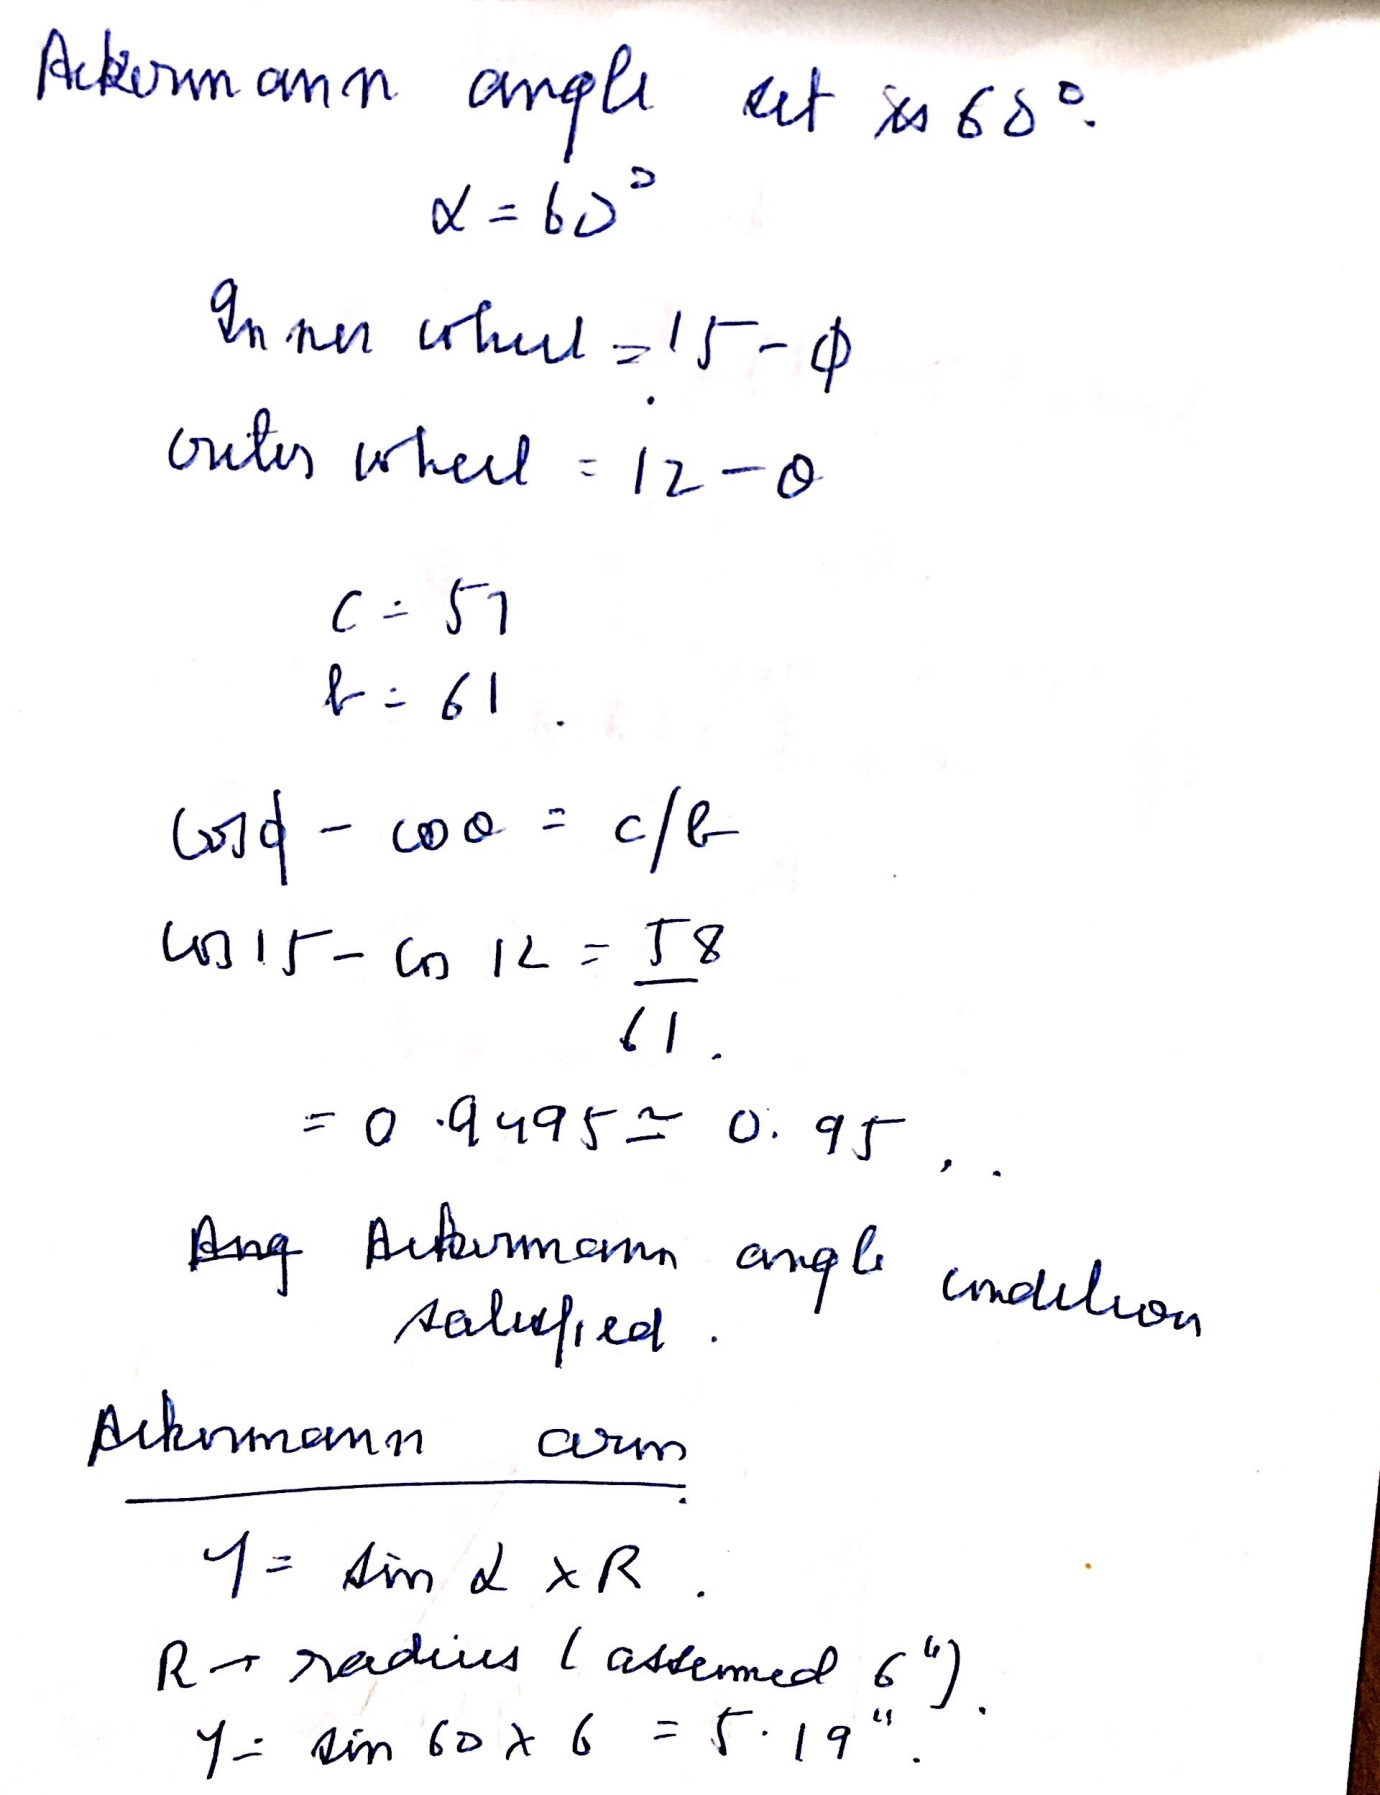 Ackermann angle set is 60°.
α = 60°
Inner wheel = 15 - ϕ
outer wheel = 12 - θ
c = 57
b = 61.
cosϕ - cosθ = c/b
cos 15 - cos 12 = 58
61.
= 0.9495 ≃ 0.95,.
Ang Ackermann angle condition
satisfied.
Ackermann arm
Y = sin α x R.
R → radius (assumed 6").
Y = sin 60 x 6 = 5.19".